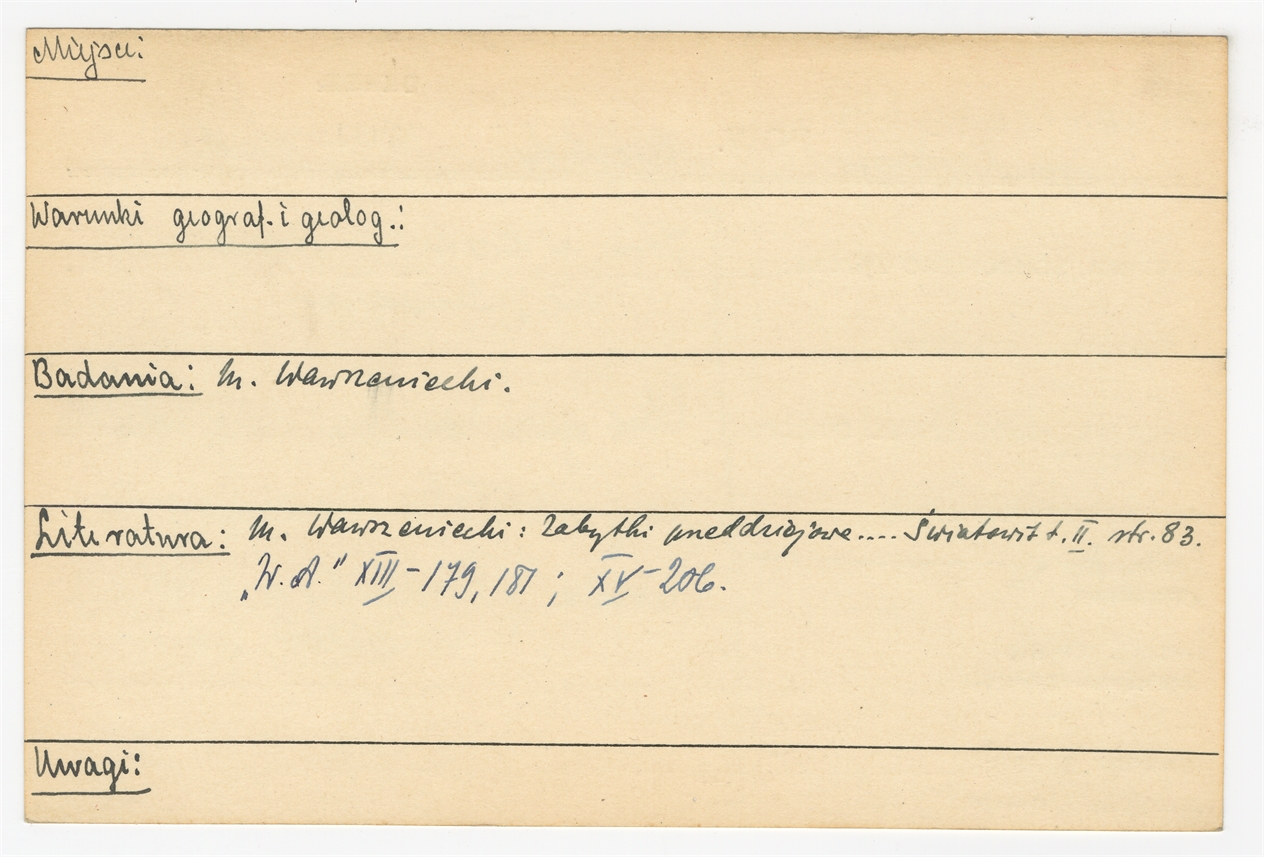 Miejsce:
Warunki geograf. i geolog.:
Badania: M. Wawrzeniecki.
Literatura: M. Wawrzeniecki: Zabytki przeddziejowe.... Światowit t. II. str. 83.
„W.A." XIII - 179, 181 ; XV - 206.
Uwagi: